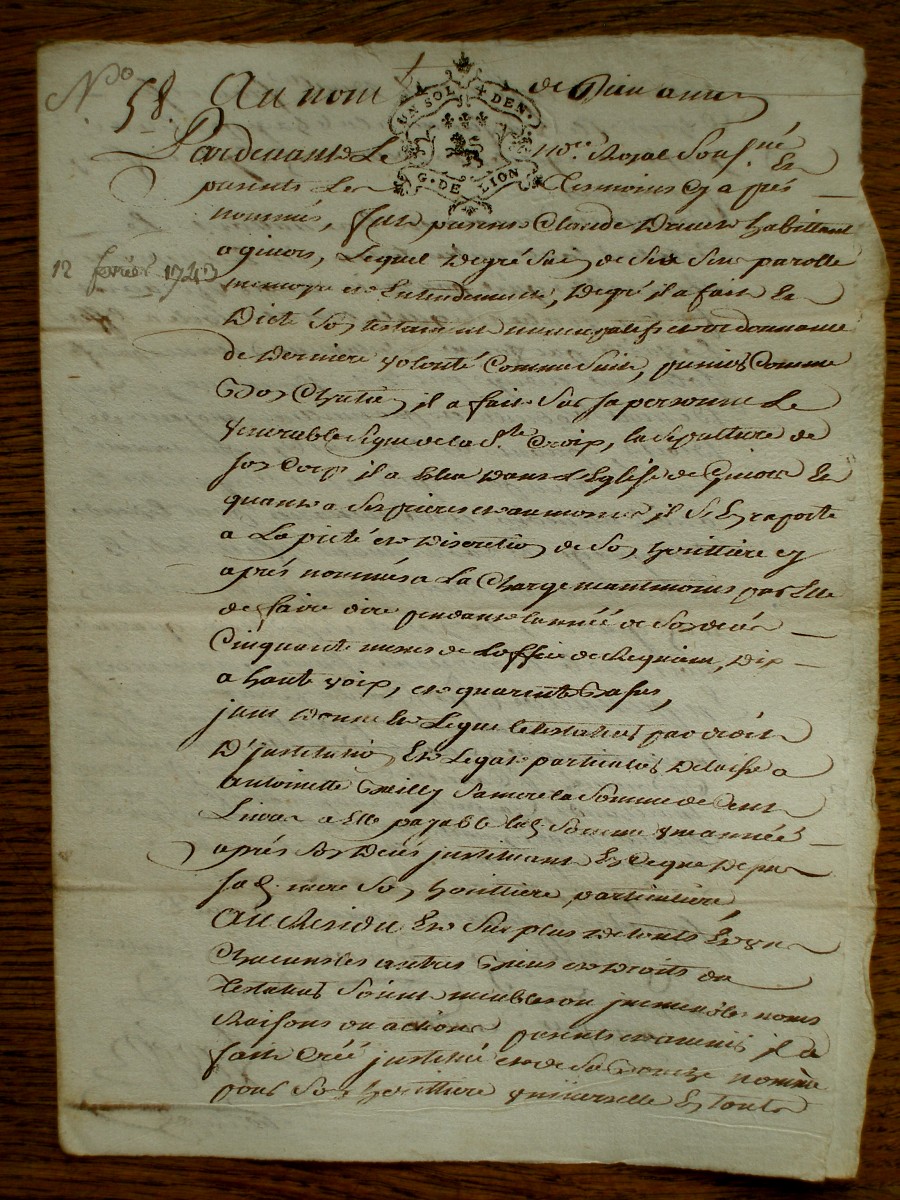 N.o 58. Au nom de Dieu amen
UN SOL + DEN.
G. DE LION
Pardevant Le no.re Royal Sousigné Et
presents Les Tesmoins Cy aprés
nommés, fut present Claude habittant
a givors, Lequel de gré Sain de Ses Sens parolle
12 fevrier 174
memoyre et Entendement, De gré il a fait Et
Dicté Son testament nuncupatif et ordonnance
de Derniere volonté Comme Suit, premier Comme
Bon Chretien il a fait Sur Sa personne Le
Venerable Signe de la S.te Croix, la Sepulture de
Son Corps il a Eleu dans L'Eglise de Givors Et
quant a Ses prieres et aumones il S'En raporte
a La pieté et Discretion de Son herittiere Cy
aprés nommée a La Charge neantmoins par Elle
de faire dire pendant l'année de Son decés
Cinquante messes de L'office de Requiem, Dix
a haute voix, et quarente Basses,
Donne Et Legue Le testateur par droit
D'institution Et Legat particulier Delaisse a
Antoinette Sa mere la Somme de Cent
Livres a Elle payable lad. Somme Une année
aprés Son Decés instituant En Ce que Dessus
Sad. mere Son heritiere particuliere
Au Residu Et Surplus de touts Et Un
Chacuns les autres Biens et Droits du
Testateur Soient meubles ou immeubles noms
Raisons ou actions presents et avenir il a
fait Créé institué et de Sa Bouche nommé
pour Son heritiere Universelle En touts